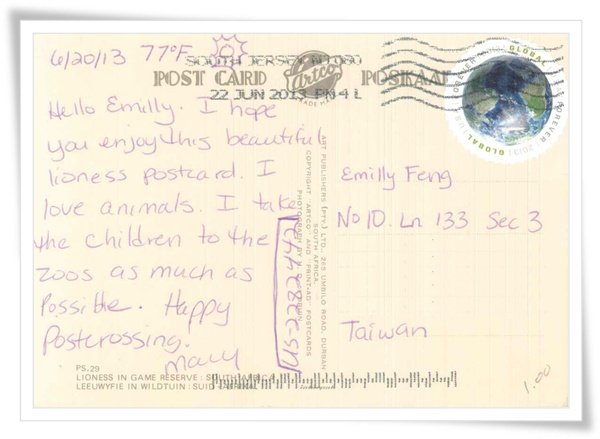 6/20/13 77°F
SOUTH JERSEY NJ 080
POST CARD Artco POSKAART
TRADE MARK
22 JUN 2013 PM 4 L
GLOBAL FOREVER
Hello Emilly. I hope
you enjoy this beautiful
lioness postcard. I
love animals. I take
the children to the
zoos as much as
Possible. Happy
Postcrossing.
Mary
ART PUBLISHERS (PTY.) LTD., 265 UMBILO ROAD, DURBAN
SOUTH AFRICA
COPYRIGHT "ARTCO" AND "PRINTAG" POSTCARDS
PHOTOGRAPH BY
Emilly Feng
No 10. Ln 133 Sec 3
Taiwan
PS.29
LIONESS IN GAME RESERVE : SOUTH AFRICA
LEEUWYFIE IN WILDTUIN : SUID AFRIKA
1.00